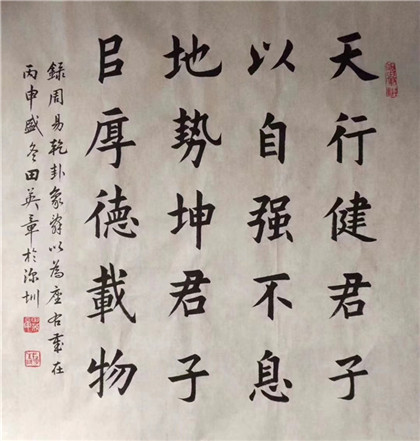 天行健君子
以自强不息
地勢坤君子
㠯厚德載物
録周易乾卦象辭以為座右歲在
丙申盛冬田英章於深圳